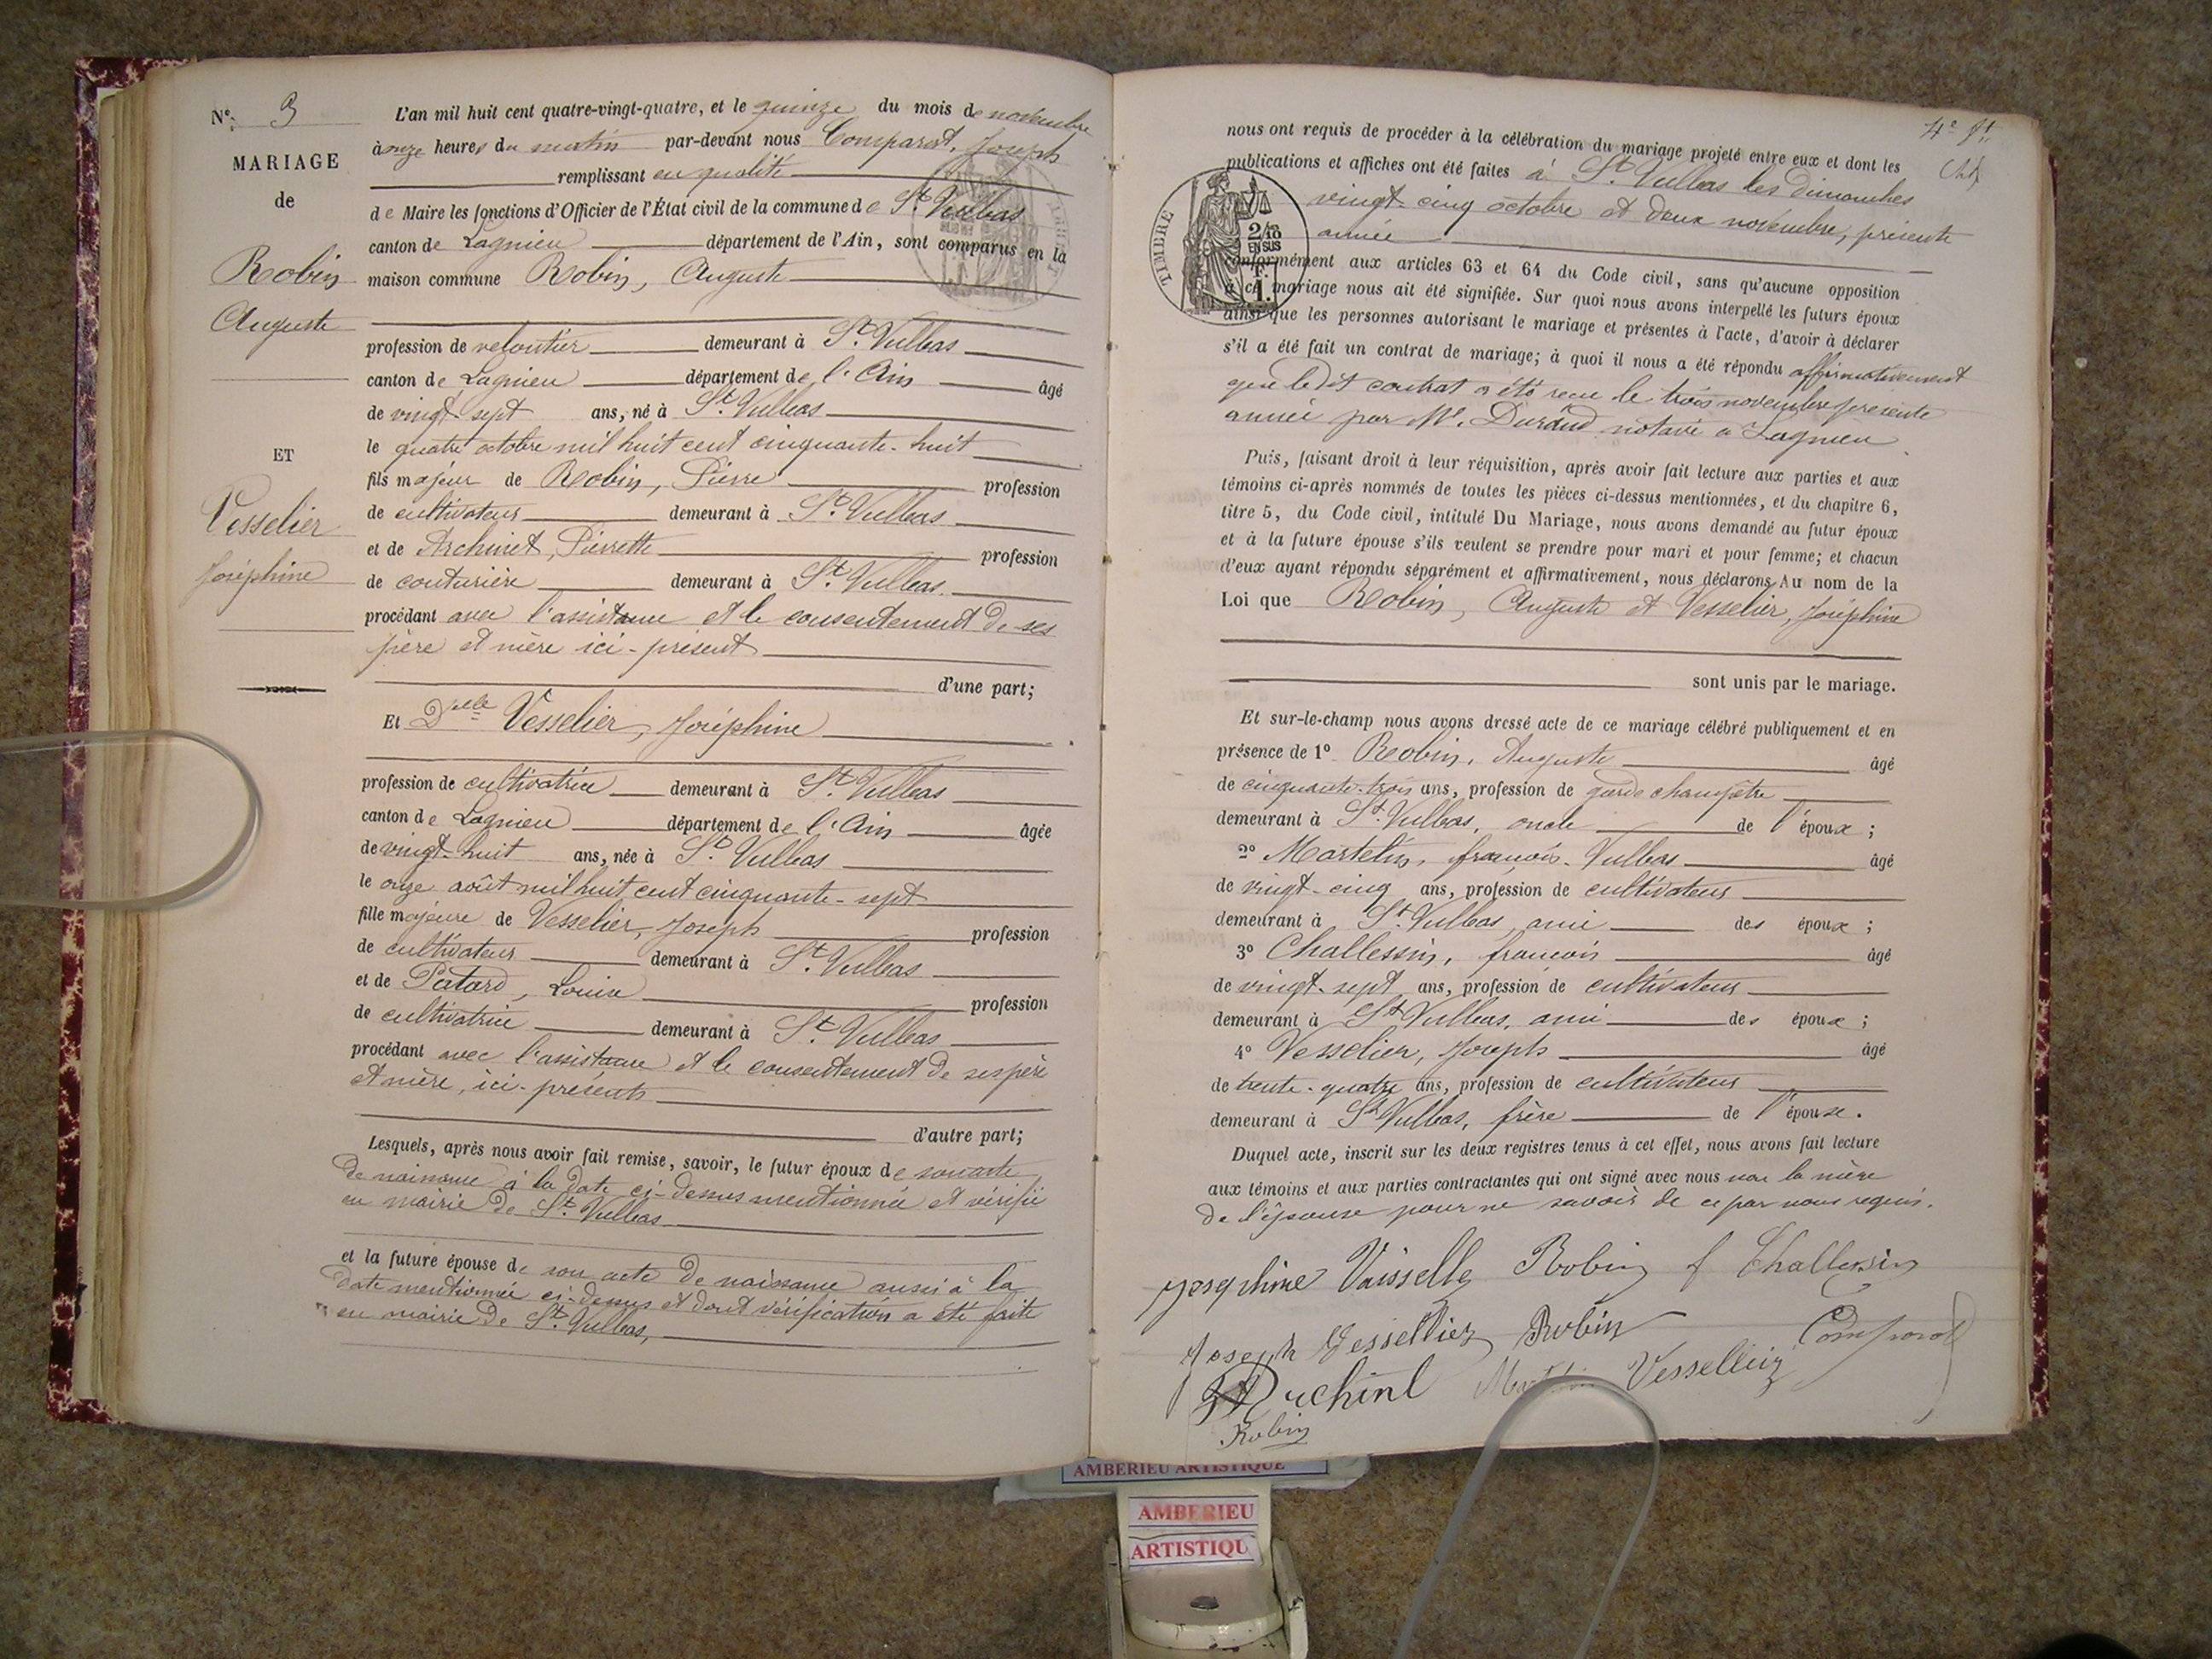 N°: 3
MARIAGE
de
Robin
Auguste
ET
Vesselier
Joséphine
L'an mil huit cent quatre-vingt-quatre, et le quinze du mois de novembre
à onze heures du matin par-devant nous Comparat, Joseph
remplissant en qualité
de Maire les fonctions d'Officier de l'État civil de la commune de St. Vulbas
canton de Lagnieu département de l'Ain, sont comparus en la
maison commune Robin, Auguste
profession de veloutier demeurant à St. Vulbas
canton de Lagnieu département de l'Ain âgé
de vingt-sept ans, né à St. Vulbas
le quatre octobre mil huit cent cinquante-huit
fils majeur de Robin, Pierre profession
de cultivateur demeurant à St. Vulbas
et de Archinet, Pierrette profession
de couturière demeurant à St. Vulbas
procédant avec l'assistance et le consentement de ses
père et mère ici-présent
d'une part;
Et Delle Vesselier, Joséphine
profession de cultivatrice demeurant à St. Vulbas
canton de Lagnieu département de l'Ain âgée
de vingt-huit ans, née à St. Vulbas
le onze août mil huit cent cinquante-sept
fille majeure de Vesselier, Joseph profession
de cultivateur demeurant à St. Vulbas
et de Patard, Louise profession
de cultivatrice demeurant à St. Vulbas
procédant avec l'assistance et le consentement de ses père
et mère, ici-présents
d'autre part;
Lesquels, après nous avoir fait remise, savoir, le futur époux de son acte
de naissance à la date ci-dessus mentionnée et vérifié
en mairie de St. Vulbas
et la future épouse de son acte de naissance aussi à la
date mentionnée ci-dessus et dont vérification a été faite
en mairie de St. Vulbas,
4e ft.
nous ont requis de procéder à la célébration du mariage projeté entre eux et dont les
publications et affiches ont été faites à St. Vulbas les dimanches
vingt-cinq octobre et deux novembre, présente
année
TIMBRE
2/10
EN SUS
F.
1.
conformément aux articles 63 et 64 du Code civil, sans qu'aucune opposition
à ce mariage nous ait été signifiée. Sur quoi nous avons interpellé les futurs époux
ainsi que les personnes autorisant le mariage et présentes à l'acte, d'avoir à déclarer
s'il a été fait un contrat de mariage; à quoi il nous a été répondu affirmativement
que ledit contrat a été reçu le trois novembre presente
année par Me. Durand notaire a Lagnieu
Puis, faisant droit à leur réquisition, après avoir fait lecture aux parties et aux
témoins ci-après nommés de toutes les pièces ci-dessus mentionnées, et du chapitre 6,
titre 5, du Code civil, intitulé Du Mariage, nous avons demandé au futur époux
et à la future épouse s'ils veulent se prendre pour mari et pour femme; et chacun
d'eux ayant répondu séparément et affirmativement, nous déclarons Au nom de la
Loi que Robin, Auguste et Vesselier, Joséphine
sont unis par le mariage.
Et sur-le-champ nous avons dressé acte de ce mariage célébré publiquement et en
présence de 1° Robin, Auguste âgé
de cinquante-trois ans, profession de garde champêtre
demeurant à St. Vulbas, oncle de l'époux;
2° Martelin, françois-Vulbas âgé
de vingt-cinq ans, profession de cultivateur
demeurant à St. Vulbas, ami des époux;
3° Challessin, francois âgé
de vingt-sept ans, profession de cultivateur
demeurant à St. Vulbas, ami des époux;
4° Vesselier, Joseph âgé
de trente-quatre ans, profession de cultivateur
demeurant à St. Vulbas, frère de l'épouse.
Duquel acte, inscrit sur les deux registres tenus à cet effet, nous avons fait lecture
aux témoins et aux parties contractantes qui ont signé avec nous non la mère
de l'épouse pour ne savoir de ce par nous requis.
Josephine Vaisselle Robin f Challessin
Joseph Vessellier Robin Comparat
Archinet Martelin Vessellier
Robin
AMBERIEU ARTISTIQUE
AMBERIEU
ARTISTIQU